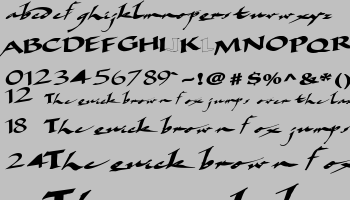 abcdefghijklmnopqrstuvwxyz
ABCDEFGHIJKLMNOPQR
0123456789 ~!@#$%^&*()
12 The quick brown fox jumps over the laz
18 The quick brown fox jumps
24 The quick brown fox